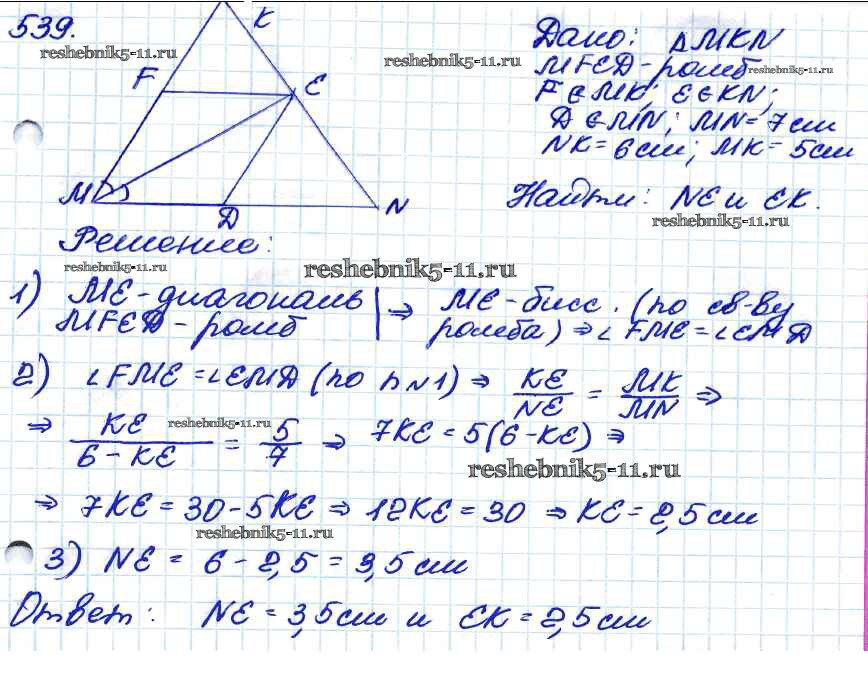 539.
reshebnik5-11.ru
K
F
E
M
D
N
reshebnik5-11.ru
Дано: ΔMKN
MFED - ромб
reshebnik5-11.ru
F∈MK; E∈KN;
D∈MN; MN = 7см
NK = 6см; MK = 5см
Найти: NE и EK.
reshebnik5-11.ru
Решение:
reshebnik5-11.ru
reshebnik5-11.ru
1) ME - диагональ | ⇒ ME - бисс. (по св-ву
MFED - ромб | ромба) ⇒ ∠FME = ∠EMD
2) ∠FME = ∠EMD (по п N1) ⇒ KE/NE = MK/MN ⇒
⇒ KE/(6 - KE) = 5/7 ⇒ 7KE = 5(6 - KE) ⇒
reshebnik5-11.ru
reshebnik5-11.ru
⇒ 7KE = 30 - 5KE ⇒ 12KE = 30 ⇒ KE = 2,5 см
reshebnik5-11.ru
3) NE = 6 - 2,5 = 3,5 см
Ответ: NE = 3,5 см и EK = 2,5 см